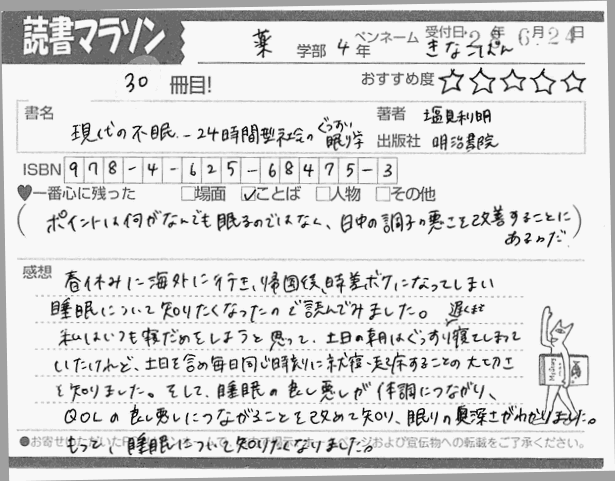 読書マラソン
薬 学部 4年 ペンネーム きなこぱん 受付日・28年 6月24日
30 冊目! おすすめ度 ☆☆☆☆☆
書名 現代の不眠 - 24時間型社会の ぐっすり眠り学
著者 塩見利明
出版社 明治書院
ISBN 978-4-625-68475-3
♥一番心に残った □場面 ☑ことば □人物 □その他
(ポイントは何がなんでも眠るのではなく、日中の調子の悪さを改善することに
あるのだ)
感想
春休みに海外に行き、帰国後、時差ボケになってしまい
睡眠について知りたくなったので読んでみました。
私はいつも寝だめをしようと思って、土日の朝は遅くまでぐっすり寝てしまって
いたけれど、土日を含め毎日同じ時刻に就寝・起床することの大切さ
を知りました。そして、睡眠の良し悪しが体調につながり、
QOLの良し悪しにつながることを改めて知り、眠りの奥深さがわかりました。
もっと、睡眠について知りたくなりました。
●お寄せいただいた ホームページおよび宣伝物への転載をご了承ください。